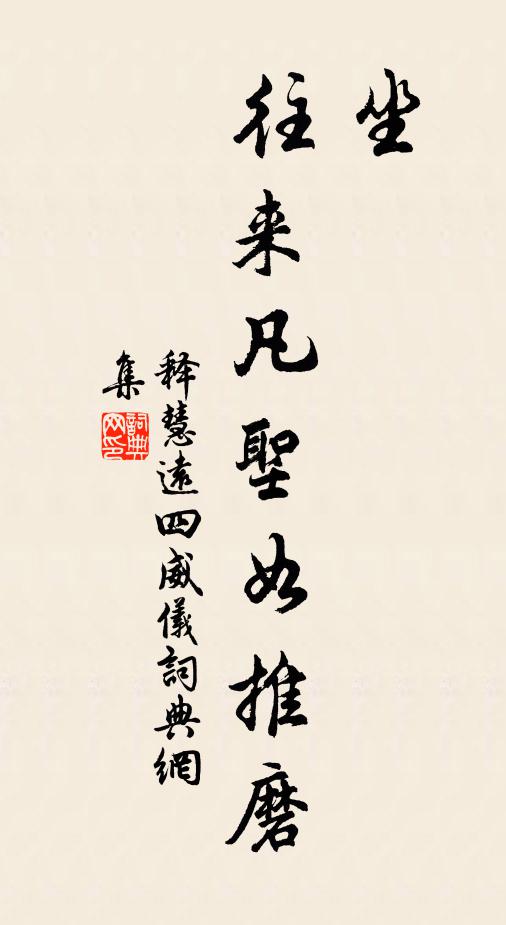 坐
往来凡聖如推磨
释慧遠四威儀詞典網
集
詞典网印